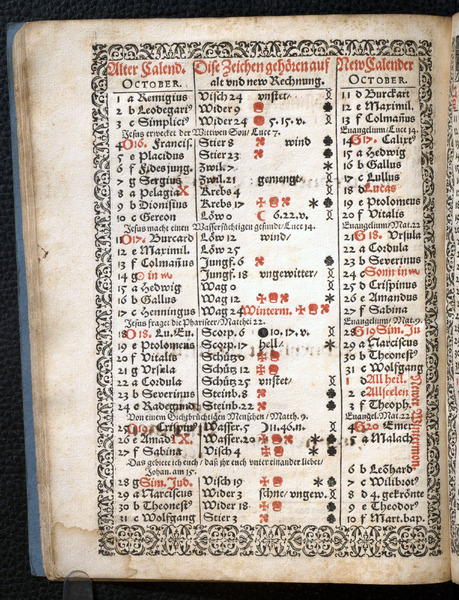 Alter Calend. Dise Zeichen gehören auf New Calender
OCTOBER. alt vnd new Rechnung. OCTOBER.
1 a Remigius Visch 24 vnstet 11 d Burckart
2 b Leodegari Wider 9 12 e Maximil.
3 c Simplici Wider 24 5. 15. v. 13 f Colmañus
Jesus erwecket der Witwen Son/ Luce 7. Euangelium/ Luce 14.
4 O16. Francis. Stier 8 wind 14 G17. Calixt
5 e Placidus Stier 23 15 a Hedwig
6 f Fides jung. Zwil. 7 16 b Gallus
7 g Sergius Zwil. 21 gemengt 17 c Lullus
8 a Pelagia Krebs 4 18 d Lucas
9 b Dionisius Krebs 17 19 e Ptolomeus
10 c Gereon Löw 0 6. 22. v. 20 f Vitalis
Jesus macht einen Wassersüchtigen gesund/ Luce 14. Euangelium/ Mat. 22
11 O17. Burcard Löw 12 wind/ 21 G18. Vrsula
12 e Maximil. Löw 25 22 a Cordula
13 f Colmañus Jungf. 6 23 b Seuerinus
14 g in Jungf. 18 vngewitter/ 24 c Sonn in
15 a Hedwig Wag 0 25 d Crispinus
16 b Gallus Wag 12 26 e Amandus
17 c Henningus Wag 24 Winterm. 27 f Sabina
Jesus fraget die Phariseer/ Mathei 22. Euangelium/ Mat. 9.
18 O18. Lu. Eu. Scorp. 6 10. 17. v. 28 G19 Sim. Ju
19 e Ptolomeus Scorp. 17 hell/ 29 a Narcissus
20 f Vitalis Schütz 0 30 b Theonest
21 g Vrsula Schütz 12 31 c Wolfgang
22 a Cordula Schütz 25 vnstet/ 1 d All heil.
23 b Seuerinus Steinb. 8 2 e Allseelen
24 c Radegund Steinb. 22 3 f Theoph.
Von einem Gichtbrüchtigen Menschen/ Matth. 9. Euangel. Mat. 22
25 O19. Crispin Wasser. 5 11. 46. n. 4 G20 Emeri
26 e Amad Wasser. 20 5 a Malach.
27 f Sabina Visch 4
Das gebiete ich euch/ daß jhr euch vnter einander liebet/
Johan. am 15. 6 b Leõhard
28 g Sim. Jud. Visch 19 7 c Wilibrot
29 a Narcissus Wider 3 schne/ vngew. 8 d 4. gekrönte
30 b Theonest Wider 18 9 e Theodor
31 c Wolfgang Stier 3 10 f Mart. bap.